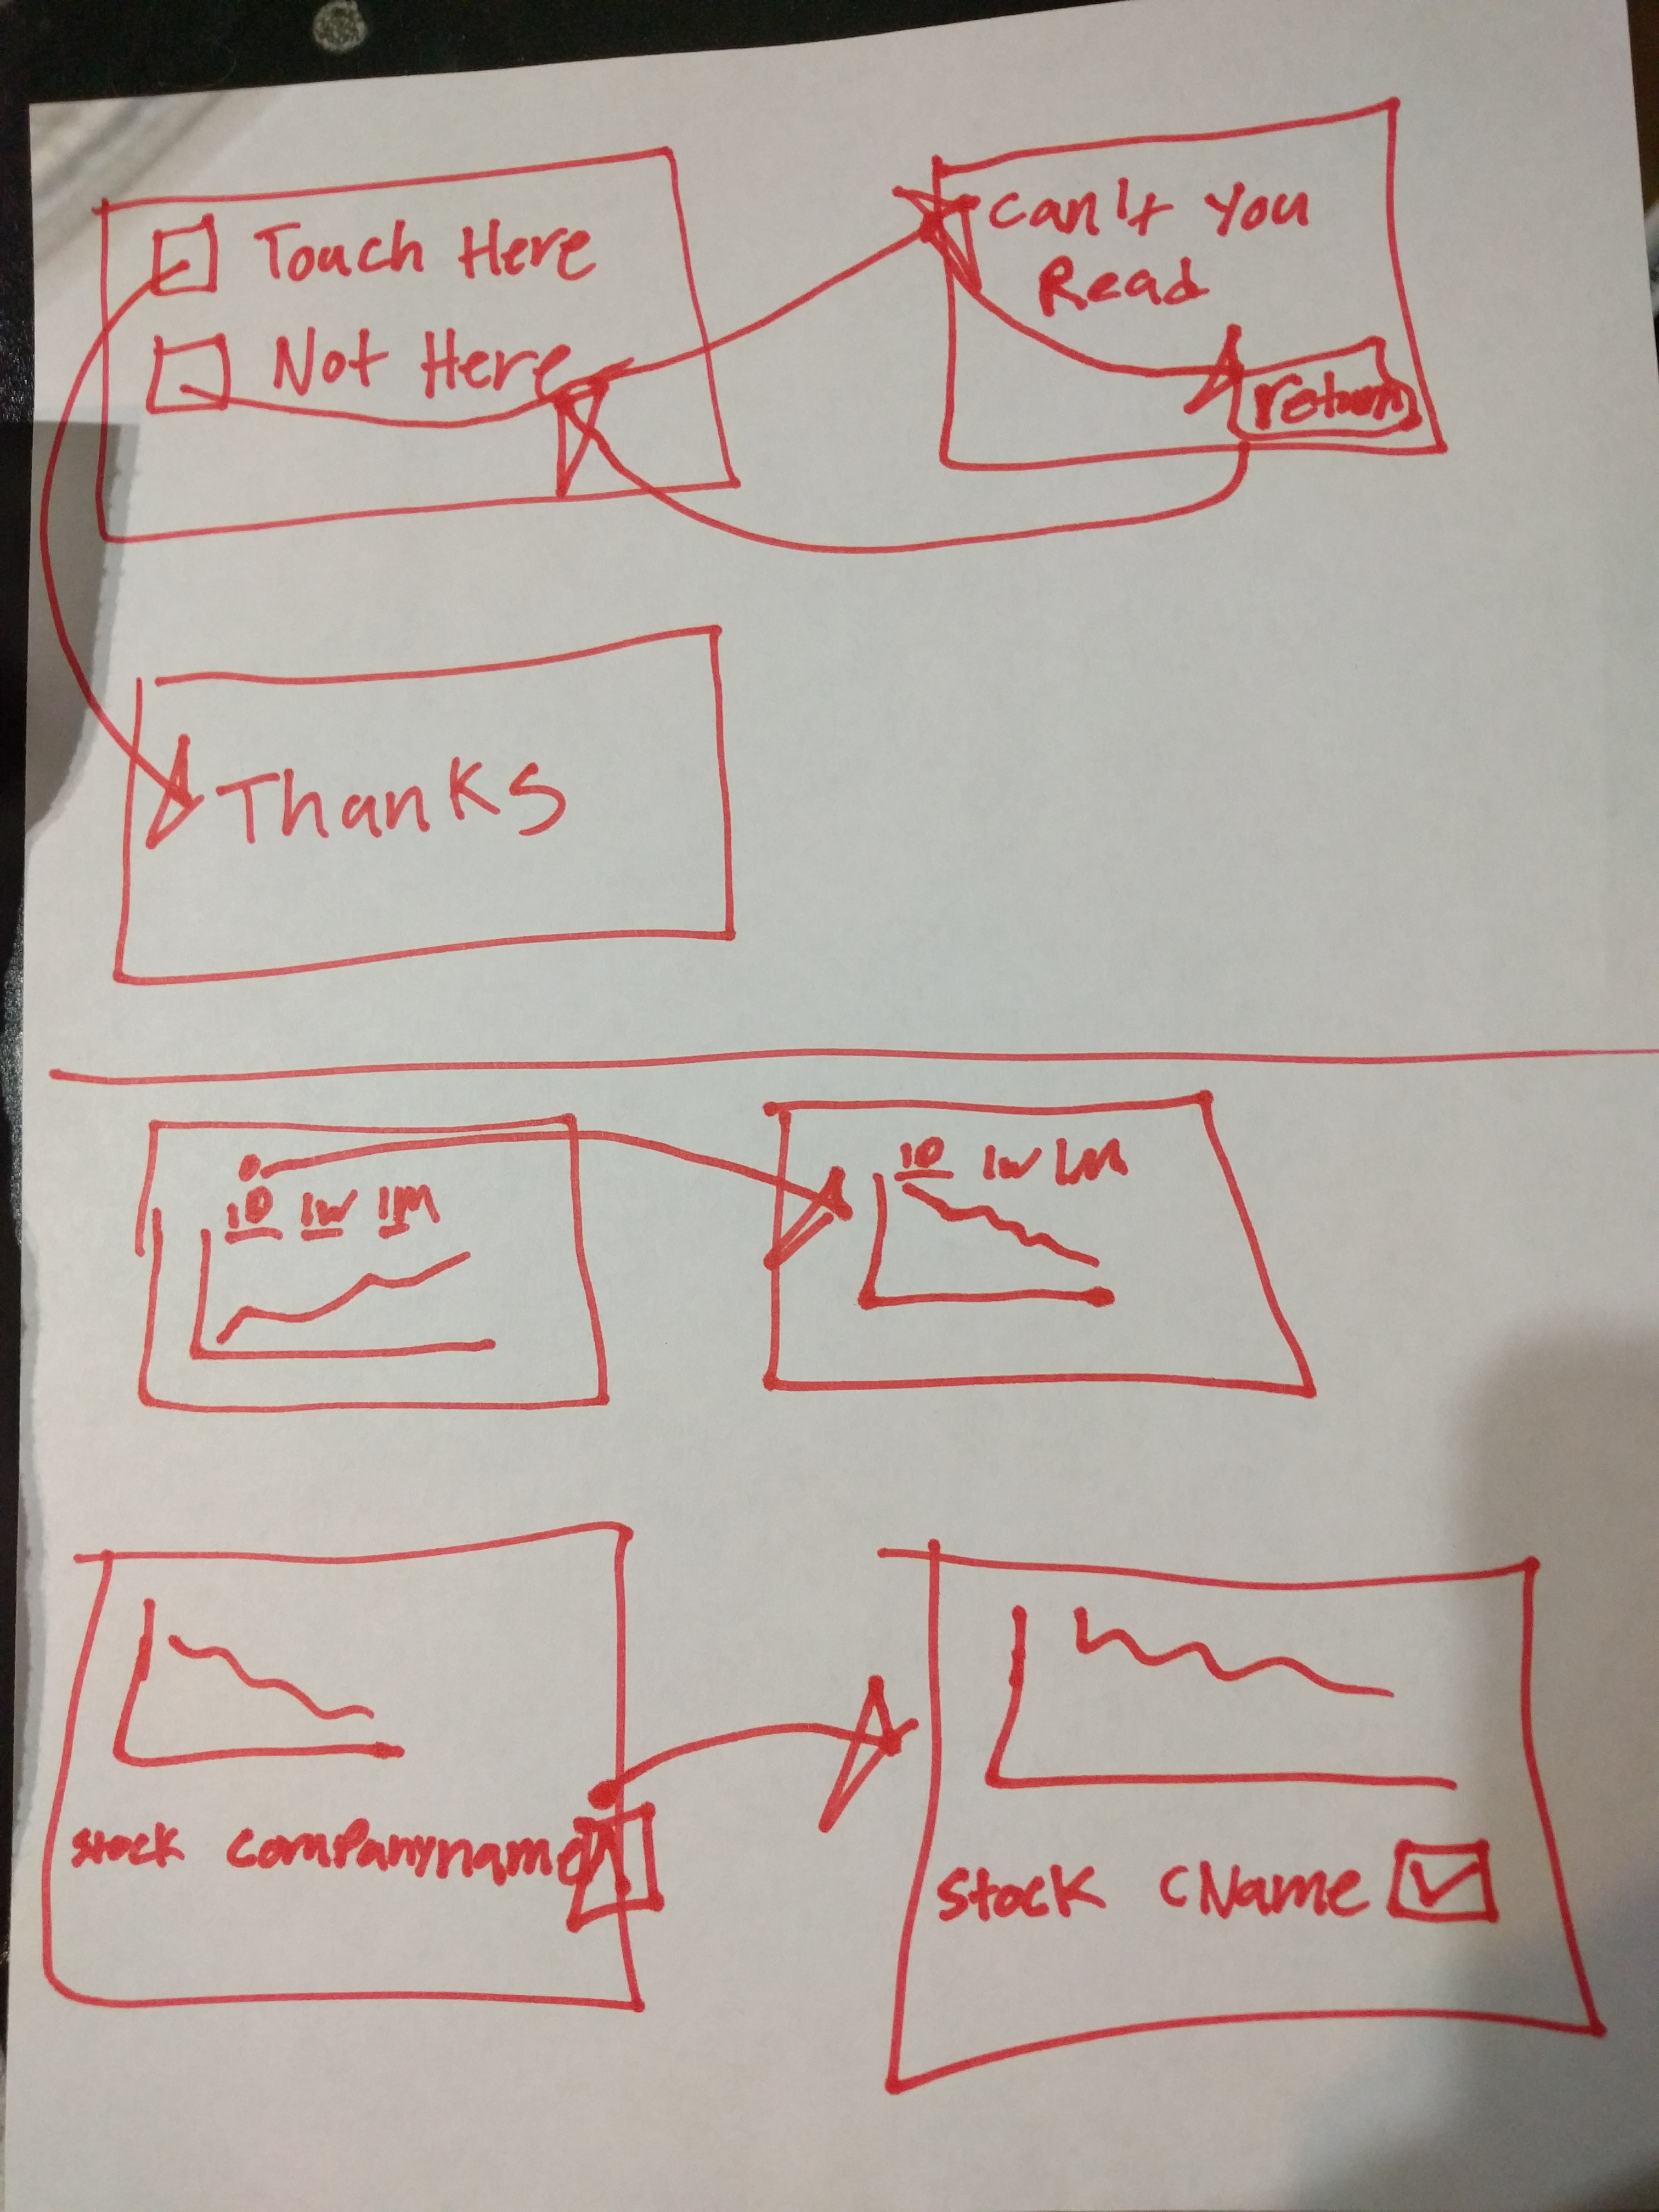 Touch Here
Not Here
Can't You
Read
return
Thanks
1D 1W 1M
1D 1W 1M
Stock Companyname
Stock CName